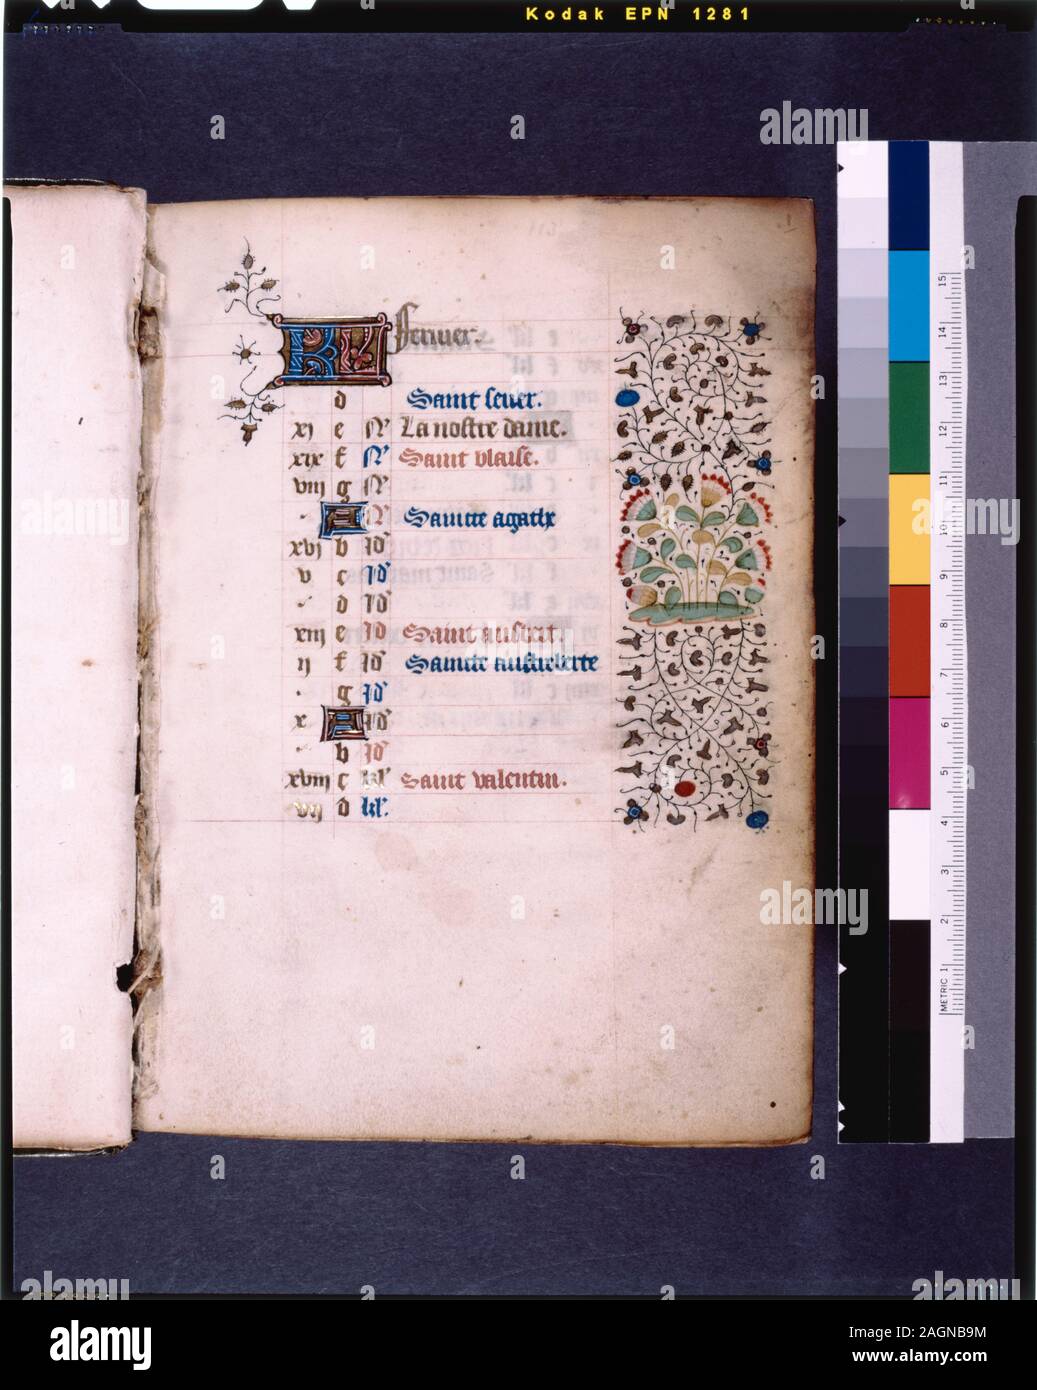 Kodak EPN 1281
KL feurier.
d Saint seuer.
xj e N La nostre dame.
xix f N Saint blaise.
viij g N
A N Saincte agathe
xvj b Id
v c Id
d Id
xiij e Id Saint austert.
ij f Id Saincte austreberte
g Id
x A Id
b Id
xviij c kl Saint valentin.
vij d kl.
15
14
13
12
11
10
9
8
7
6
5
4
3
2
METRIC 1
alamy
Image ID: 2AGNB9M
www.alamy.com